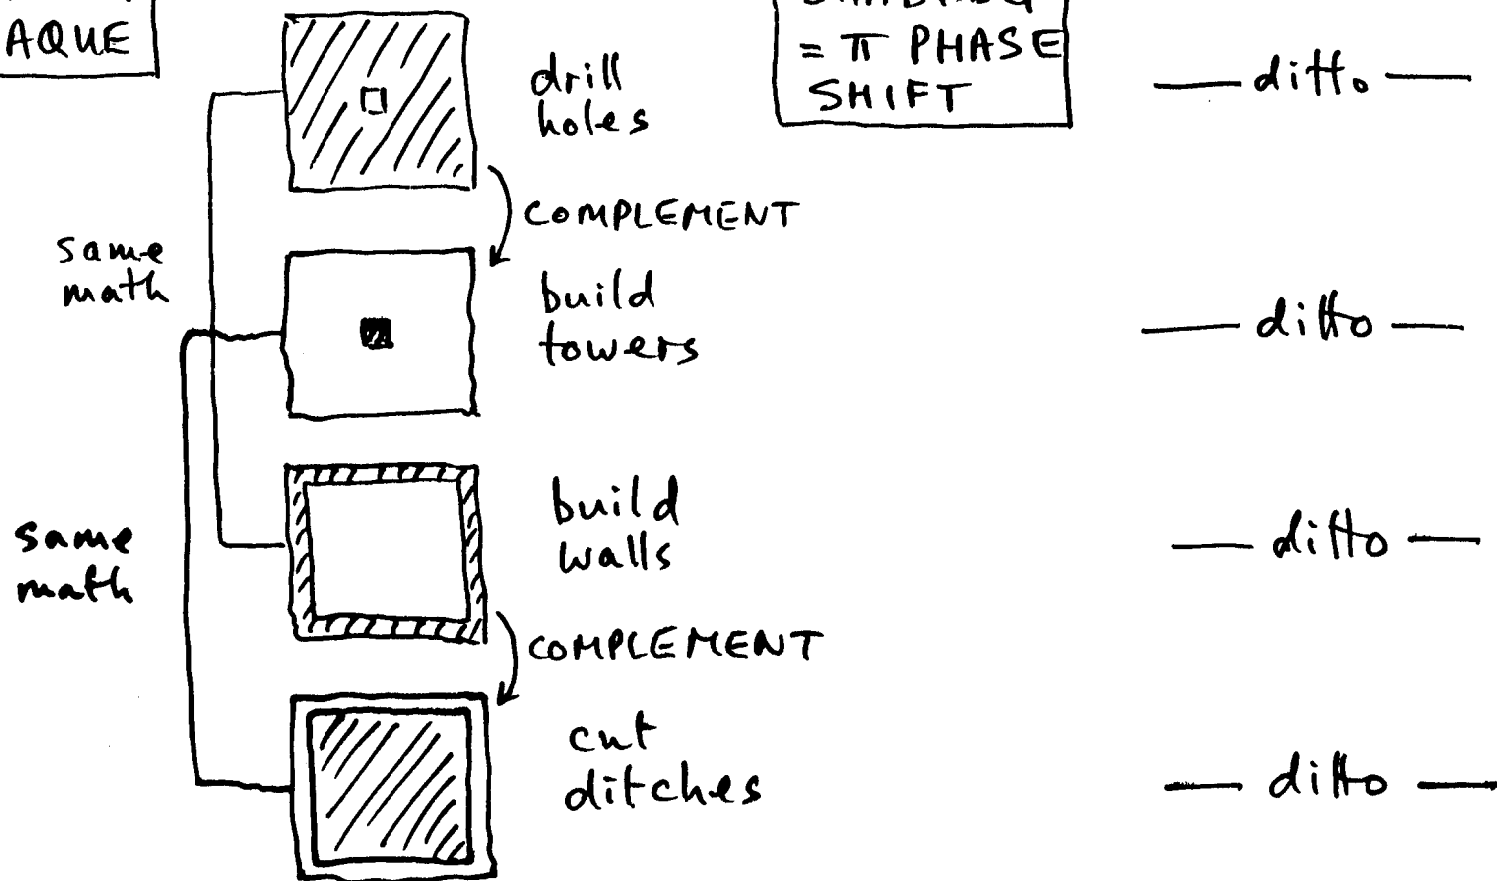 AQUE
= π PHASE
SHIFT
drill
holes
— ditto —
COMPLEMENT
same
math
build
towers
— ditto —
same
math
build
walls
— ditto —
COMPLEMENT
cut
ditches
— ditto —